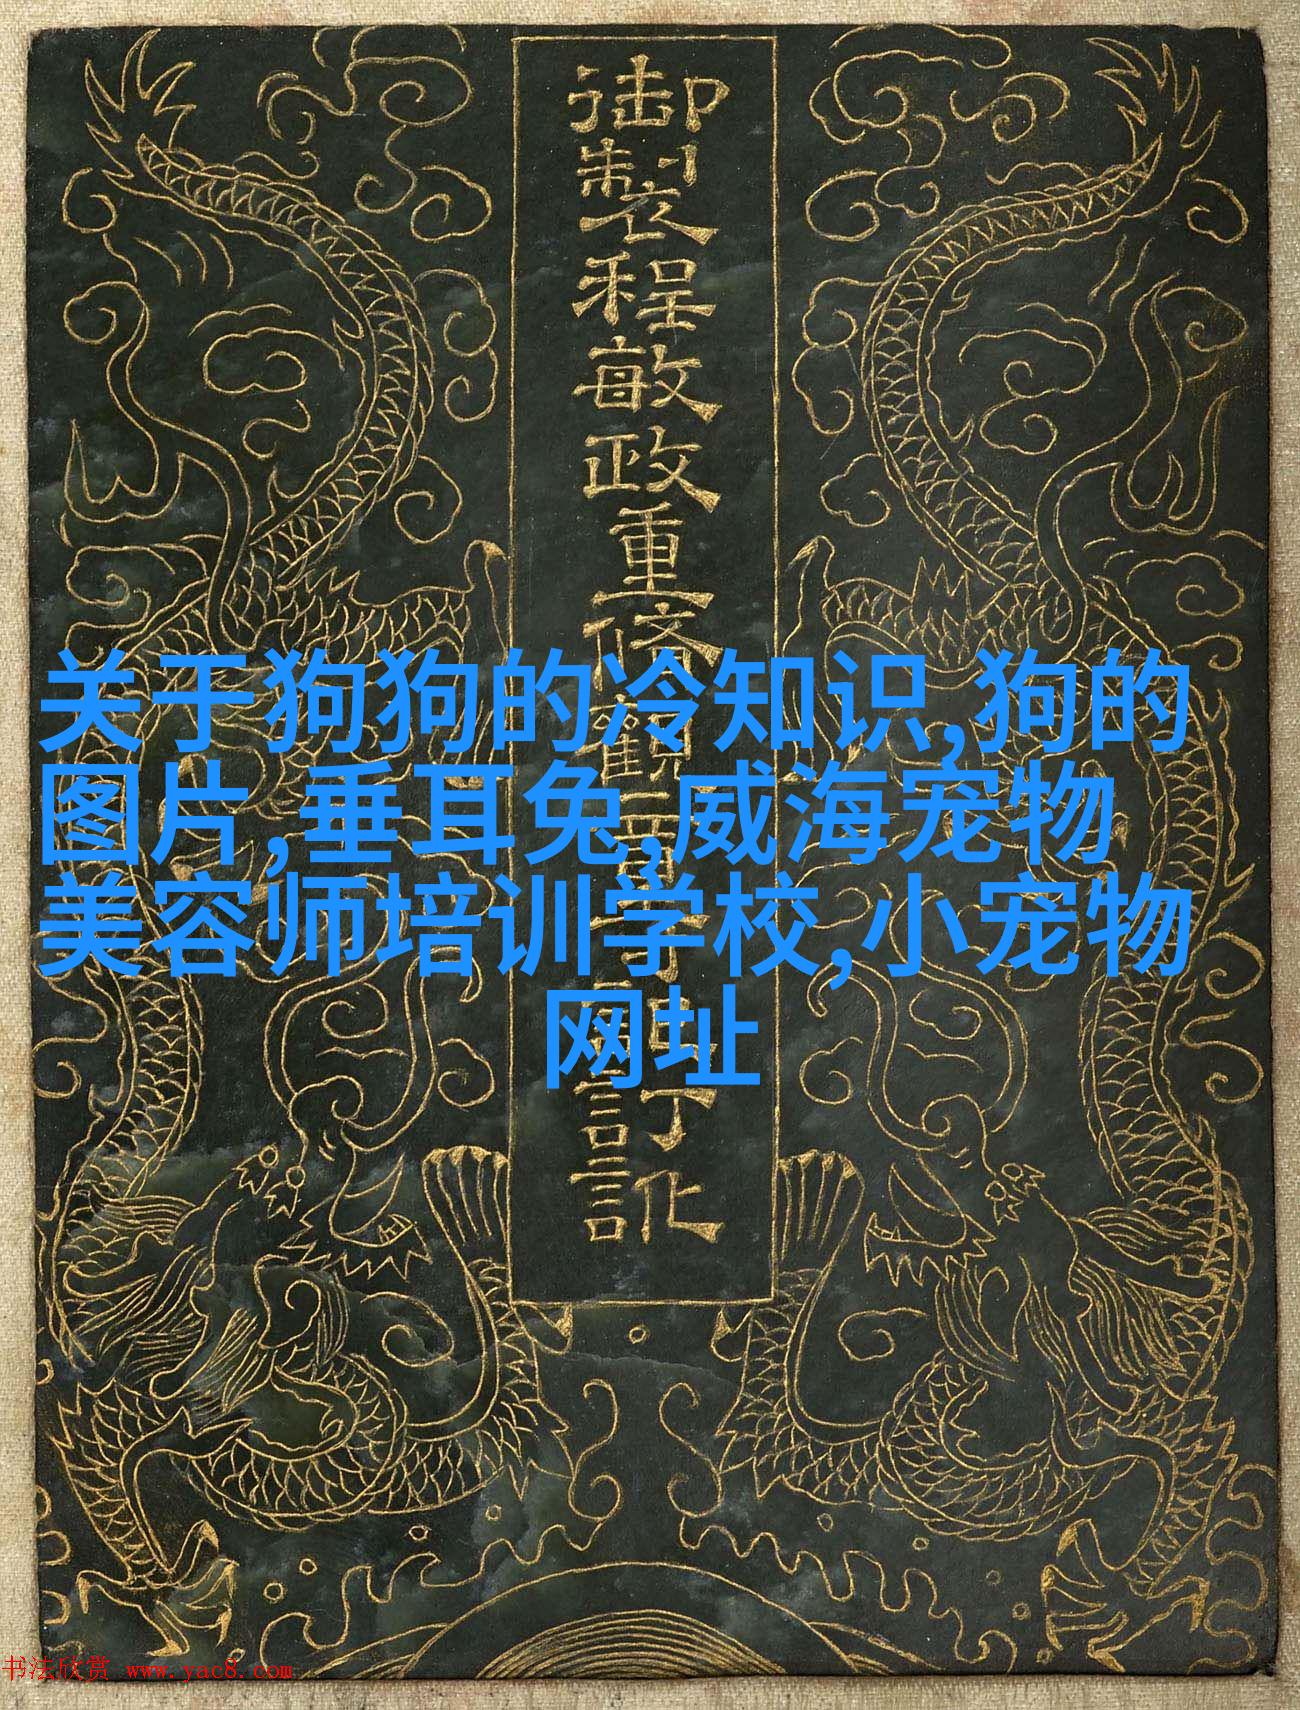 御製程敏政重修觀訂訛
关于狗狗的冷知识,狗的
图片,垂耳兔,威海宠物
美容师培训学校,小宠物
网址
书法欣赏 www.yac8.com